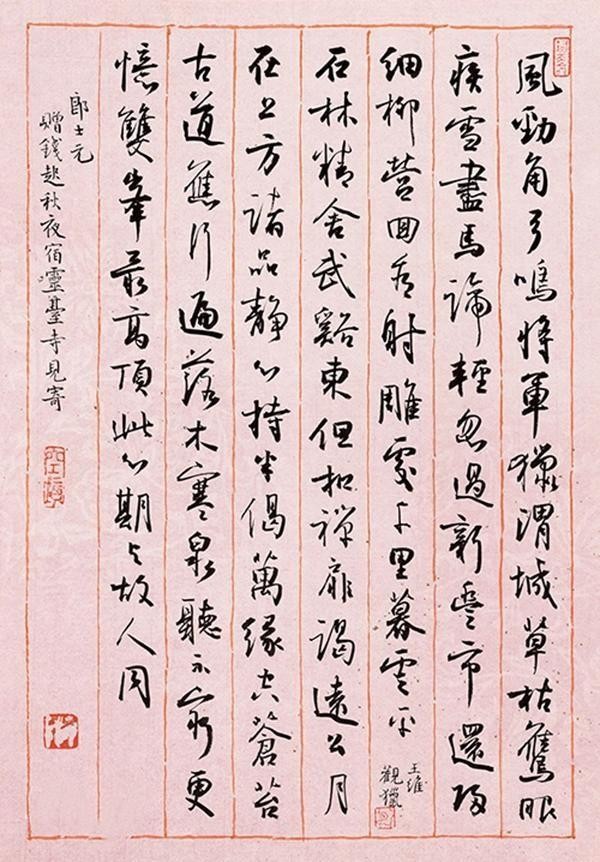 風勁角弓鳴將軍獵渭城草枯鷹眼
疾雪盡馬蹄輕忽過新豐市還歸
細柳營回看射雕處千里暮雲平
王維
觀獵
石林精舍武谿東但扣禪扉謁遠公月
在上方諸品靜心持半偈萬緣空蒼苔
古道應行遍落木寒泉聽不窮更
憶雙峯最高頂此心期與故人同
郎士元
贈錢起秋夜宿靈臺寺見寄